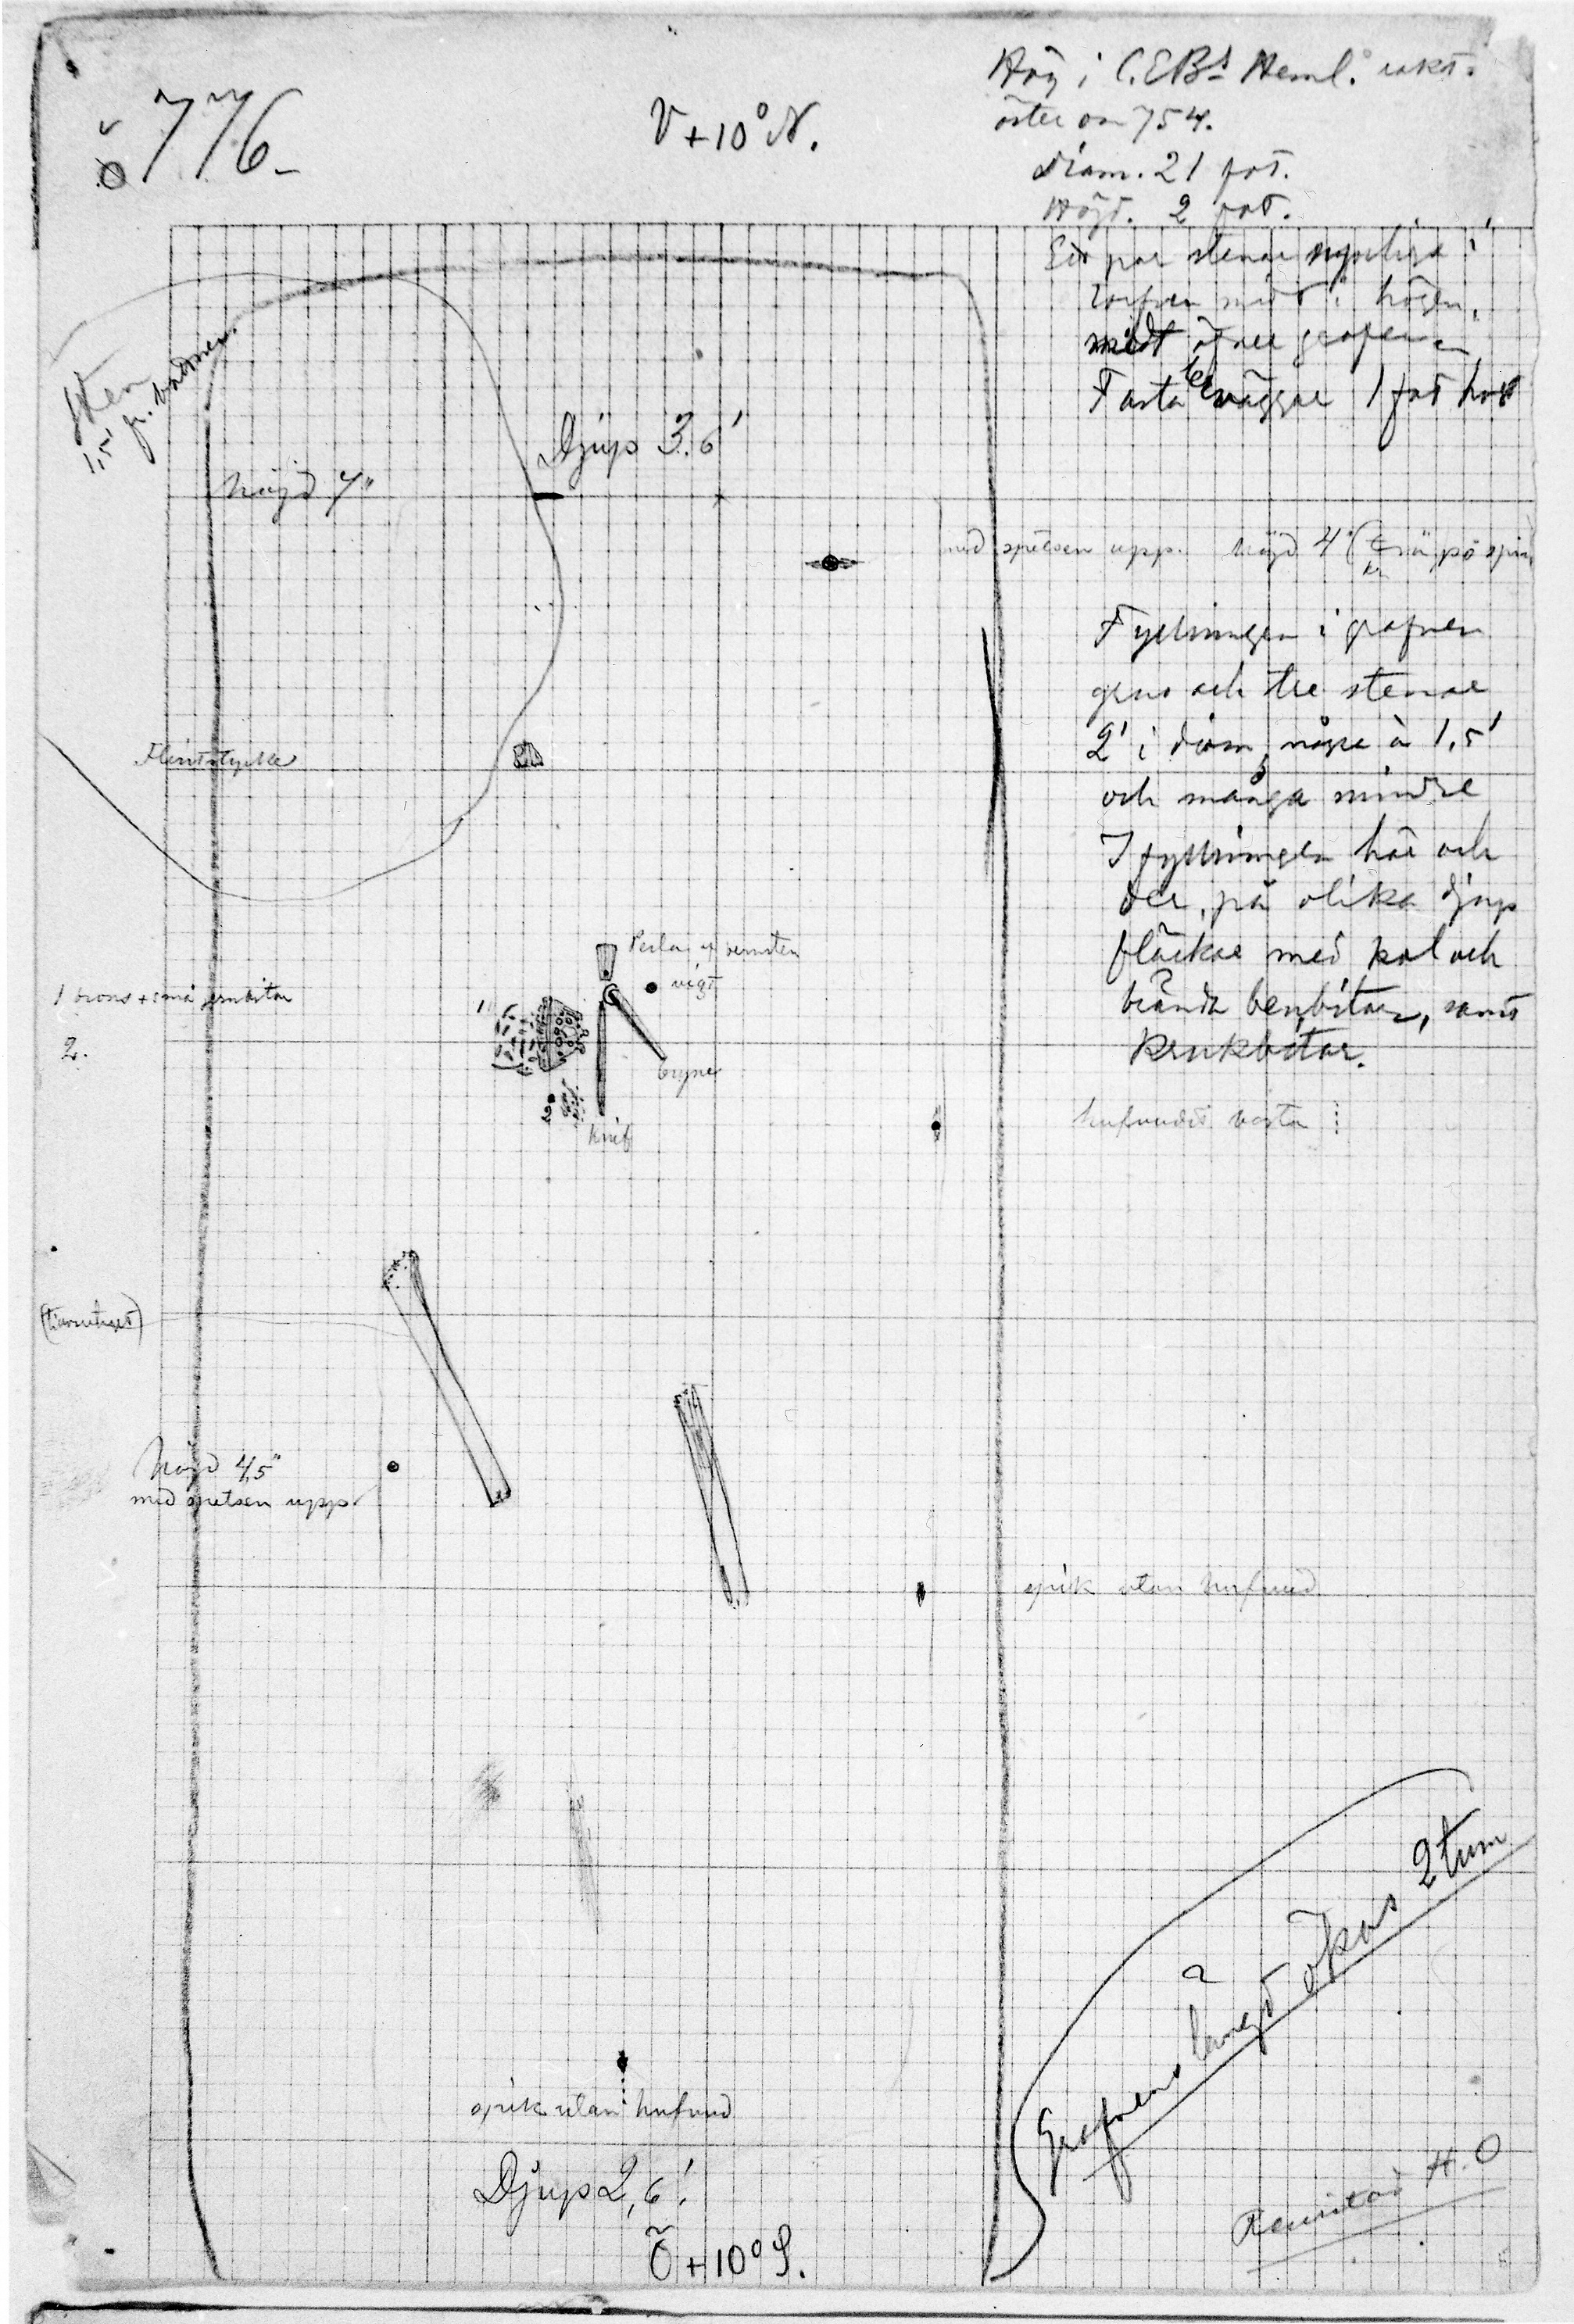 ö 776.
V + 10° N.
Hög i C.E.Bs Heml. rakt
öster om 754.
Diam. 21 fot.
Höjd. 2 fot.
Ett par stenar synliga i
torfven midt i högen,
midt öfver grafven
Fasta lerväggar 1 fot högt
Sten
1,5 fr. bottnen.
Höjd 7"
Djup 3.6'
med spetsen upp. höjd 4" ( trä på spik
Fyllningen i grafven
grus och tre stenar
2' i diam, några à 1,5'
och många mindre
I fyllningen här och
der, på olika djup
fläckar med kol och
brända benbitar, samt
krukbitar.
Flintstycke
Perla af bernsten
vigt
1 brons + små jernbitar
2.
1
bryne
2
knif
hufvudet borta
Höjd 4,5"
med spetsen upp
spik utan hufvud
spik utan hufvud
Djup 2,6'.
Ö + 10° S.
Grafvens längd ökas 2 tum
?
Renritad H.O